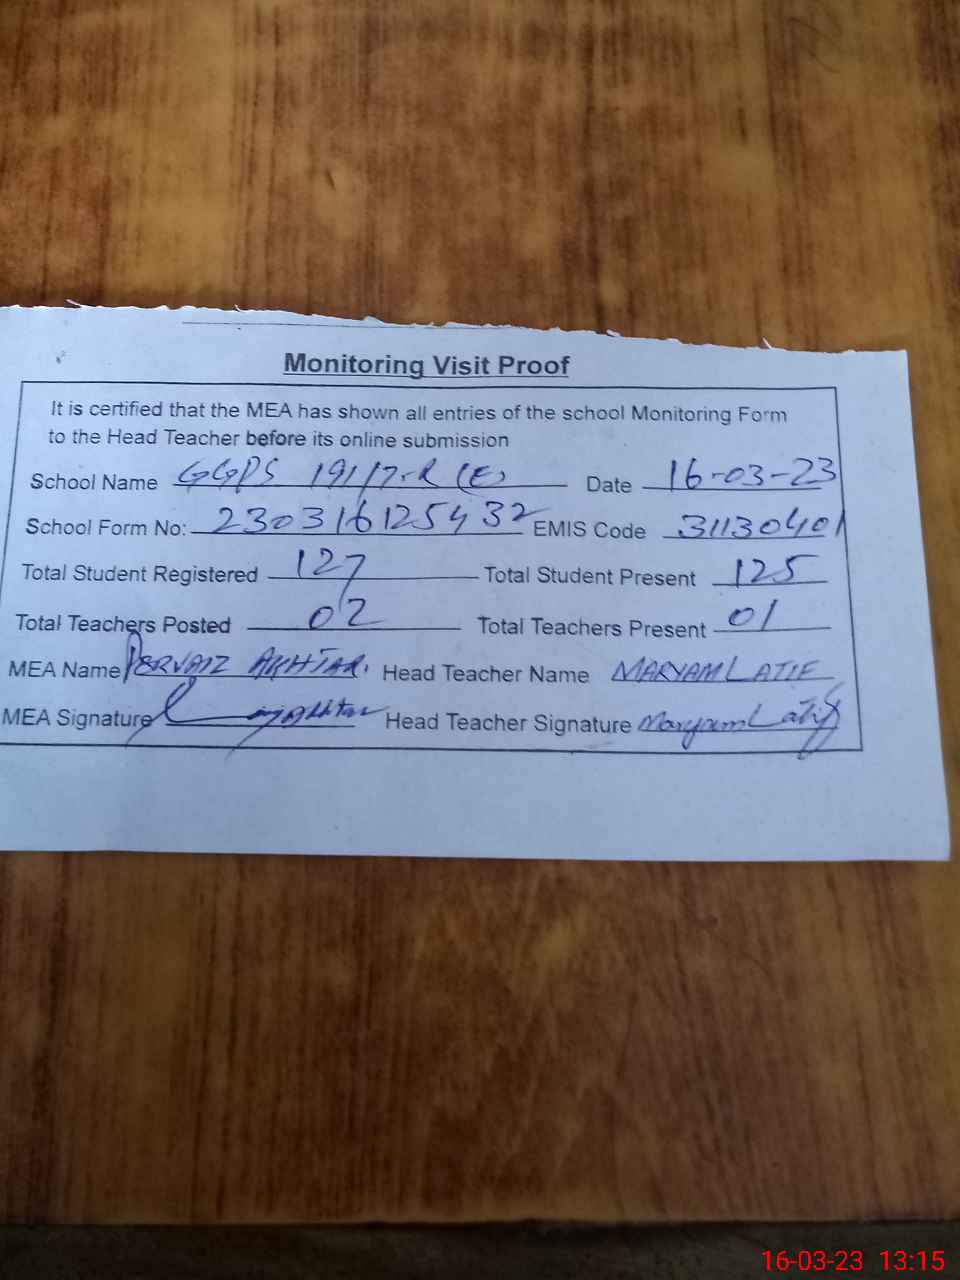 Monitoring Visit Proof
It is certified that the MEA has shown all entries of the school Monitoring Form
to the Head Teacher before its online submission
School Name GGPS 191/7-R (E) Date 16-03-23
School Form No: 230316125432 EMIS Code 31130401
Total Student Registered 127 Total Student Present 125
Total Teachers Posted 02 Total Teachers Present 01
MEA Name PERVAIZ AKHTAR. Head Teacher Name MARYAM LATIF
MEA Signature Head Teacher Signature Maryam Latif
16-03-23 13:15